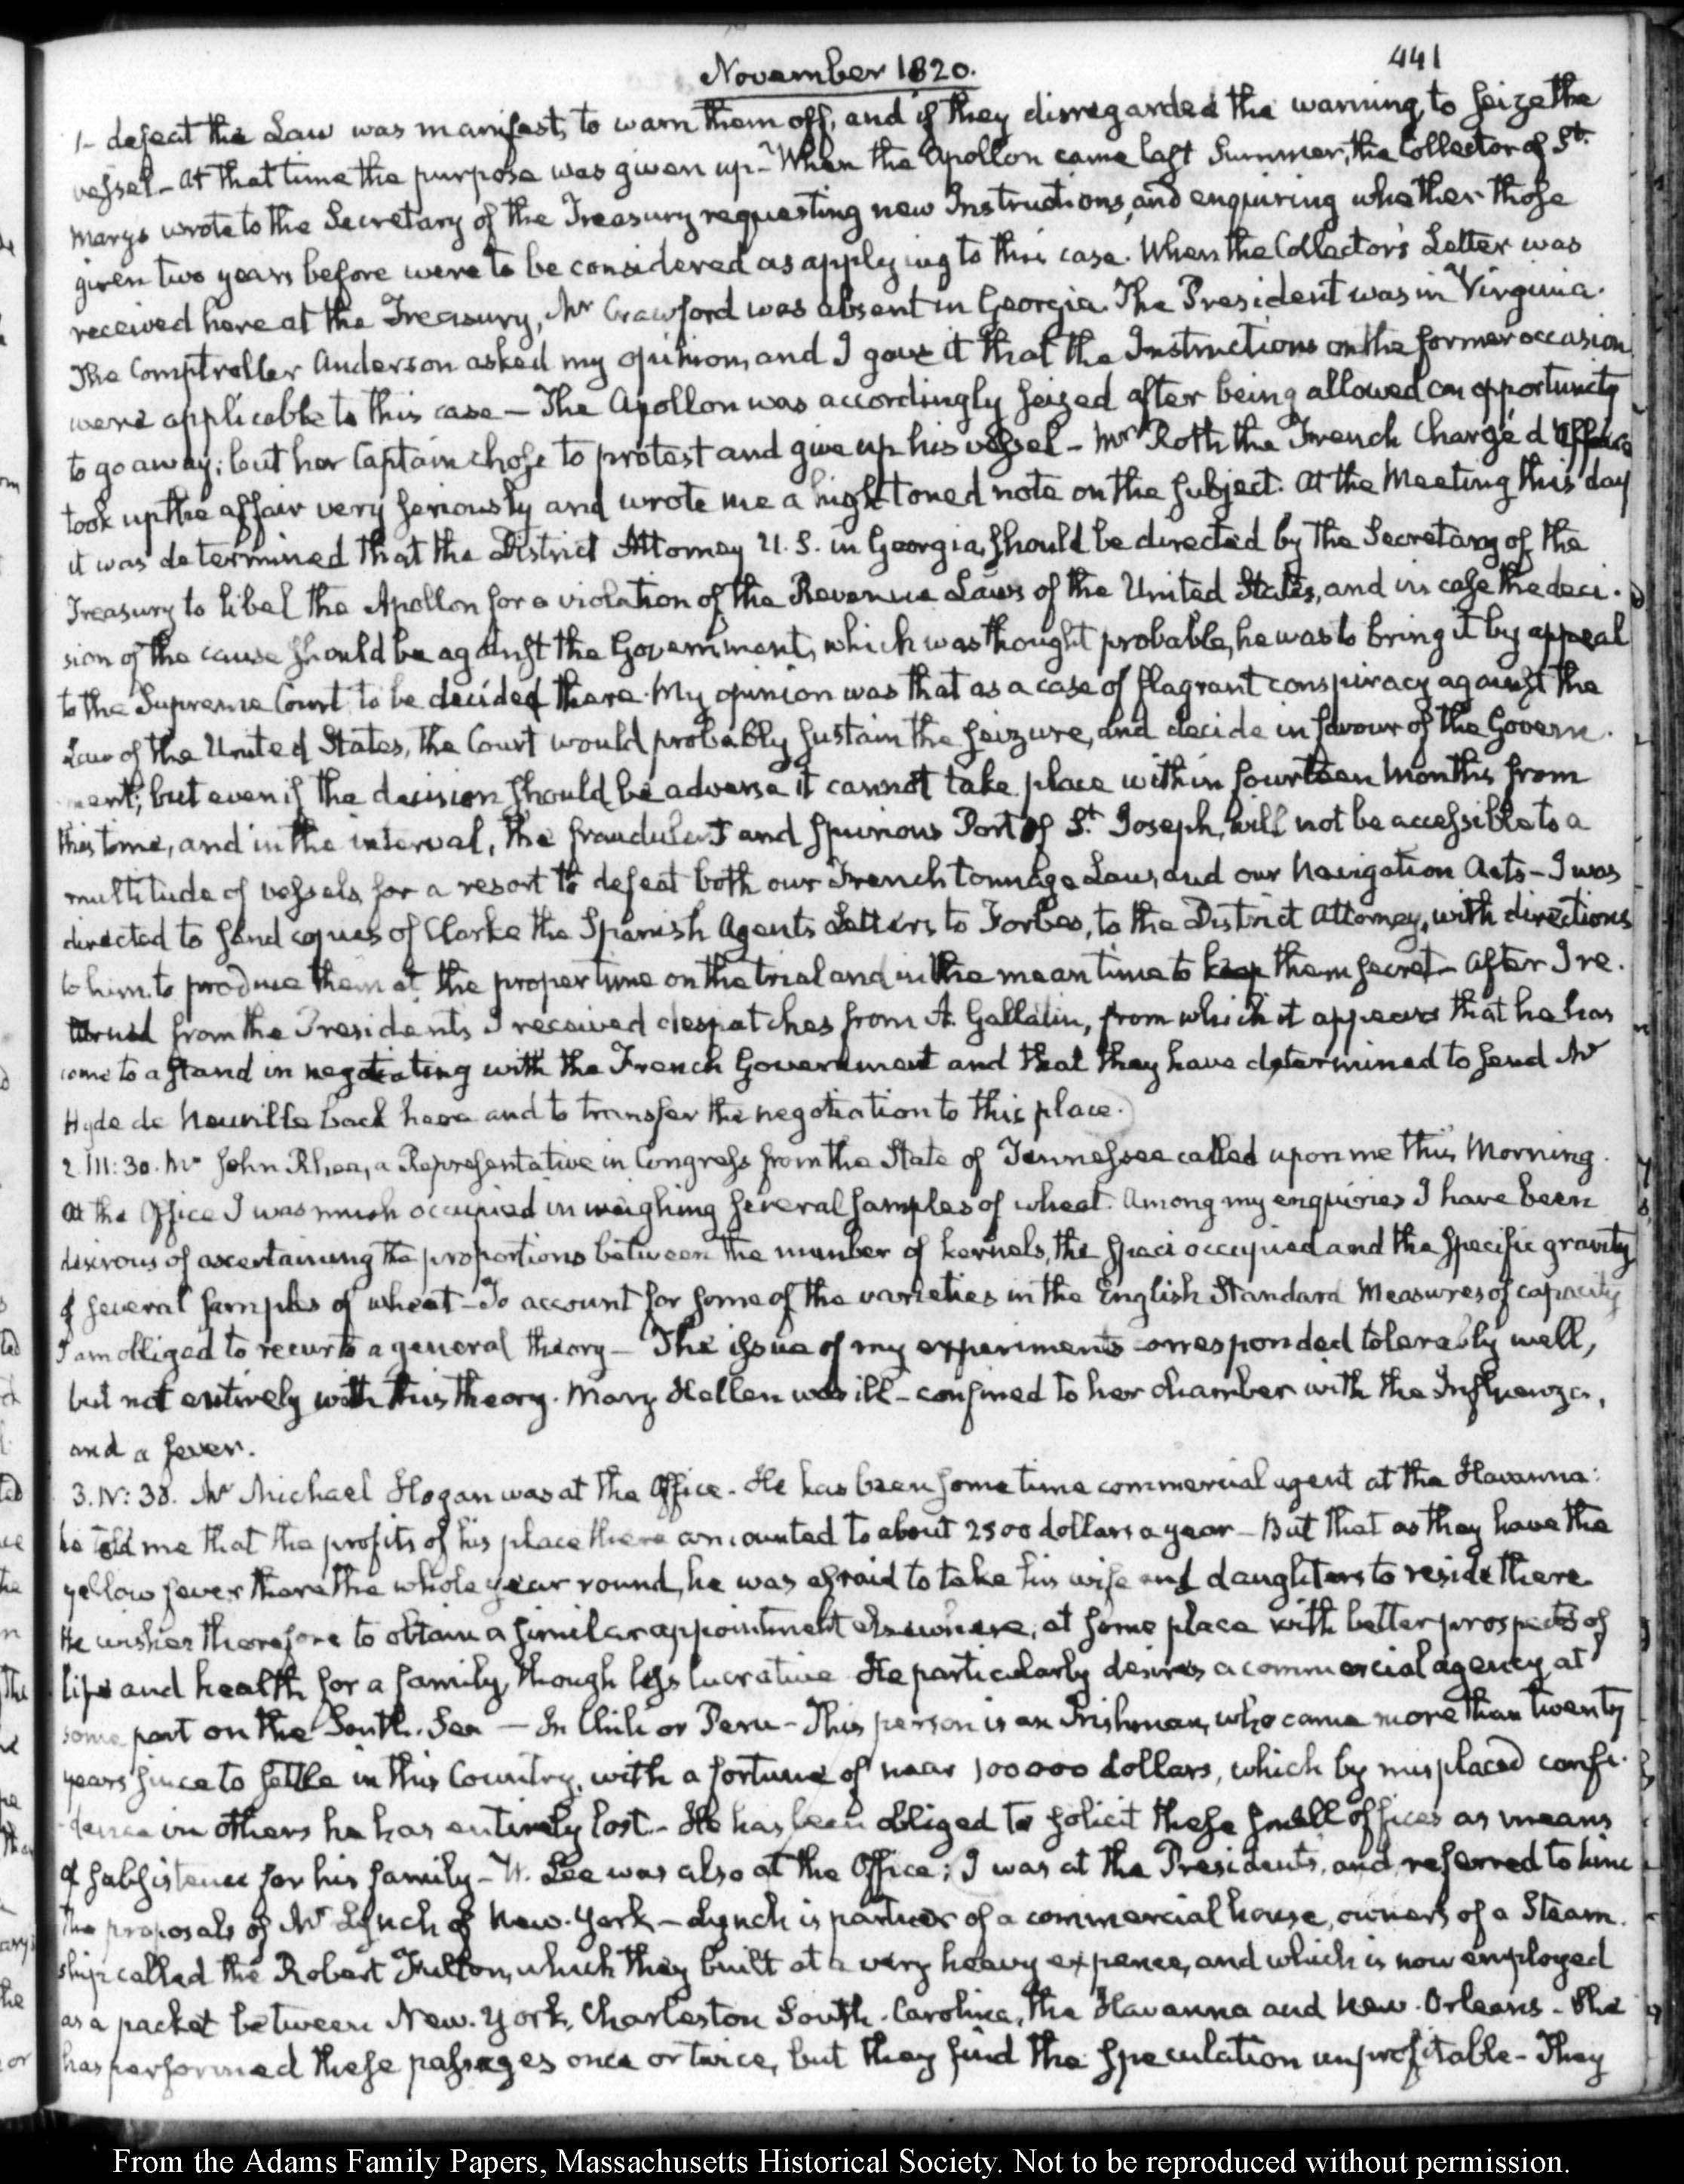 November 1820.
441
1- defeat the Law was manifest, to warn them off, and if they disregarded the warning, to seize the
vessel – At that time the purpose was given up – When the Apollon came last Summer, the Collector of St.
Marys wrote to the Secretary of the Treasury requesting new Instructions, and enquiring whether those
given two years before were to be considered as applying to this case. When the Collector's Letter was
received here at the Treasury, Mr Crawford was absent in Georgia. The President was in Virginia.
The Comptroller Anderson asked my opinion, and I gave it that the Instructions on the former occasion
were applicable to this case – The Apollon was accordingly seized after being allowed an opportunity
to go away; but her Captain chose to protest and give up his vessel – Mr Roth the French Chargé d'Affaires
took up the affair very seriously and wrote me a high toned note on the subject. At the Meeting this day
it was determined that the District Attorney U.S. in Georgia, should be directed by the Secretary of the
Treasury to libel the Apollon for a violation of the Revenue Laws of the United States, and in case the deci-
sion of the cause should be against the Government, which was thought probable, he was to bring it by appeal
to the Supreme Court to be decided there. My opinion was that as a case of flagrant conspiracy against the
Law of the United States, the Court would probably sustain the seizure, and decide in favour of the Govern-
ment; but even if the decision should be adverse it cannot take place within fourteen Months from
this time, and in the interval, the fraudulent and spurious Port of St. Joseph, will not be accessible to a
multitude of vessels, for a resort to defeat both our French tonnage Law, and our Navigation Acts – I was
directed to send copies of Clarke the Spanish Agents Letters to Forbes, to the District Attorney, with directions
to him, to produce them at the proper time on the trial and in the mean time to keep them secret – After I re-
turned from the Presidents I received despatches from A. Gallatin, from which it appears that he has
come to a stand in negotiating with the French Government and that they have determined to send Mr
Hyde de Neuville back here and to transfer the negotiation to this place.
2. III:30. Mr John Rhea, a Representative in Congress from the State of Tennessee called upon me this Morning.
At the Office I was much occupied in weighing several samples of wheat. Among my enquiries I have been
desirous of ascertaining the proportions between the number of kernels, the space occupied and the specific gravity
of several samples of wheat – To account for some of the varieties in the English Standard Measures of capacity
I am obliged to recur to a general theory – The issue of my experiments corresponded tolerably well,
but not entirely with this theory. Mary Hellen was ill – confined to her chamber with the Influenza,
and a fever.
3. IV:30. Mr Michael Hogan was at the Office – He has been some time commercial agent at the Havanna:
he told me that the profits of his place there amounted to about 2500 dollars a year – But that as they have the
yellow fever there the whole year round, he was afraid to take his wife and daughters to reside there
He wishes therefore to obtain a similar appointment elsewhere, at some place with better prospects of
life and health for a family, though less lucrative He particularly desires a commercial agency at
some port on the South Sea – In Chili or Peru – This person is an Irishman, who came more than twenty
years since to settle in this Country, with a fortune of near 100000 dollars, which by misplaced confi-
dence in others he has entirely lost – He has been obliged to solicit these small offices as means
of subsistence for his family – W. Lee was also at the Office; I was at the Presidents, and referred to him
the proposals of Mr Lynch of New-York – Lynch is partner of a commercial house, owners of a Steam-
ship called the Robert Fulton, which they built at a very heavy expence, and which is now employed
as a packet between New-York, Charleston South-Carolina, the Havanna and New-Orleans – She
has performed these passages once or twice, but they find the speculation unprofitable – They
From the Adams Family Papers, Massachusetts Historical Society. Not to be reproduced without permission.